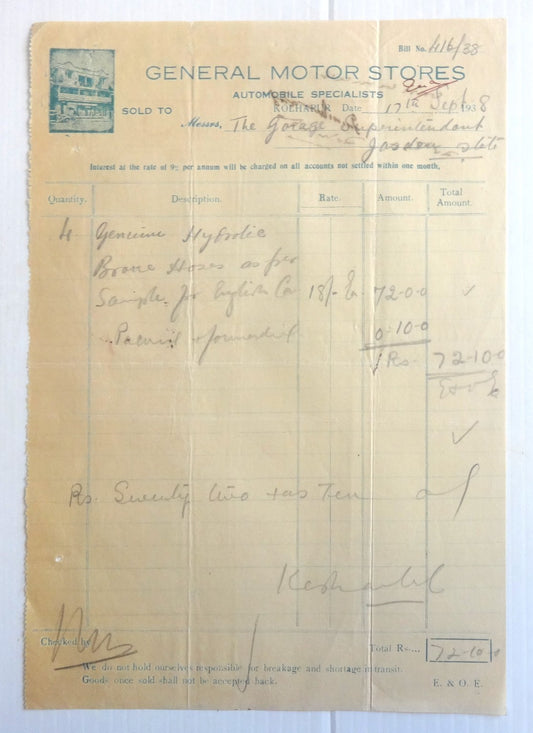 Bill No. 416/38
GENERAL MOTOR STORES
AUTOMOBILE SPECIALISTS
KOLHAPUR Date 17th Sept 1938
SOLD TO
Messrs, The Garage Superintendant
Jasdan State
Interest at the rate of 9% per annum will be charged on all accounts not settled within one month.
Quantity. Description. Rate. Amount. Total Amount.
4 Genuine Hydrolic
Hoses as per
Sample for English Car 18/- E. 72-0-0
forwarding 0-10-0
Rs. 72-10-0
E & O E
Rs. Seventy two & as Ten
Checked by
Total Rs.... 72-10-0
We do not hold ourselves responsible for breakage and shortage in transit.
Goods once sold shall not be accepted back.
E. & O. E.